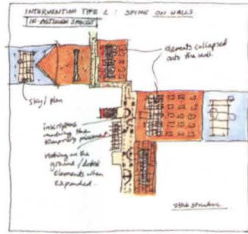 INTERVENTION TYPE 2 : SPINE ON WALLS
IN BETWEEN SPACES
elements collapsed
onto the wall
sky / plan
inscriptions
marking the
temporary placement
nothing on the
ground /
elements when
expanded.